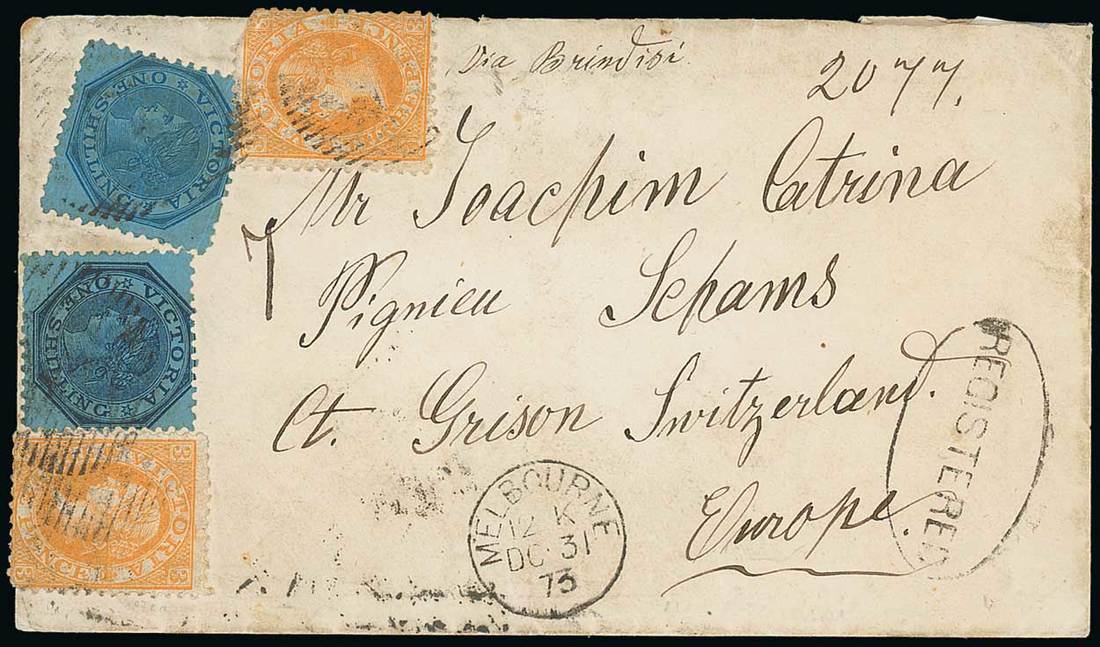 Via Brindisi
2077.
Mr Joachim Catrina
7
Pignieu Schams
Ct. Grison Switzerland.
Europe.
REGISTERED
MELBOURNE
12 K
DC 31
73
VICTORIA
ONE SHILLING
VICTORIA
ONE SHILLING
VICTORIA
THREE PENCE
3
3
VICTORIA
3
3